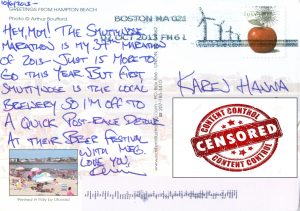 10/6/2013-
GREETINGS FROM HAMPTON BEACH
Photo © Arthur Boufford
HEY, MOM! THE SMUTTYNOSE
MARATHON IS MY 37th MARATHON
OF 2013 - JUST 15 MORE TO
GO THIS YEAR. BUT FIRST
SMUTTYNOSE IS THE LOCAL
BREWERY SO I'M OFF TO
A QUICK POST-RACE
AT THEIR BEER FESTIVAL
WITH MEG.
LOVE YOU,
BOSTON MA 021
OCT 2013 PM 6 L
KAREN HANNA
CONTENT CONTROL
CENSORED
CONTENT CONTROL